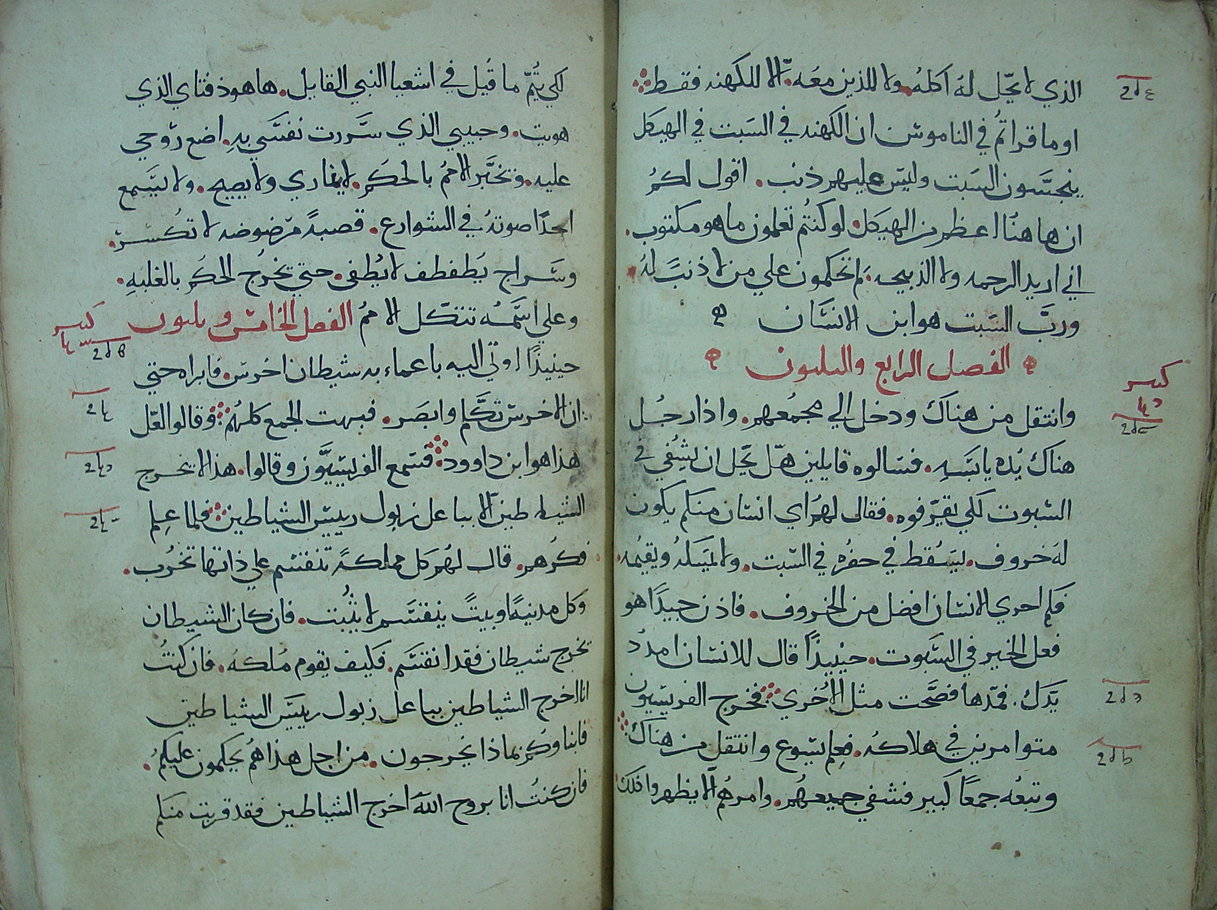 الذي لا يحل له اكله. ولا للذين معه. الا للكهنه فقط
او ما قراتم في الناموس ان الكهنه في السبت في الهيكل
ينجسون السبت وليس عليهم ذنب. اقول لكم
ان هاهنا اعظم من الهيكل. لو كنتم تعلمون ما هو مكتوب.
اني اريد الرحمه ولا الذبيحه. لم تحكمون علي من لا ذنب له
ورب السبت هو ابن الانسان
الفصل الرابع والثلثون
وانتقل من هناك ودخل الي مجمعهم. واذا رجل
هناك يده يابسه. فسالوه قايلين هل يحل ان يشفي في
السبوت لكي يقرفوه. فقال لهم اي انسان منكم يكون
له خروف. يسقط في حفره في السبت. ولا يمسكه ويقيمه.
فكم احري الانسان افضل من الخروف. فاذن جيدا هو
فعل الخير في السبوت. حينيذا قال للانسان امدد
يدك. فمدها فصحت مثل الاخري فخرج الفريسيون
متوامرين في هلاكه. فعلم يسوع وانتقل من هناك
وتبعه جمعا كبير فشفي جميعهم. وامرهم الا يظهروا ذلك
لكي يتم ما قيل في اشعيا النبي القايل. هاهوذ فتاي الذي
هويت. وحبيبي الذي سررت نفسي به. اضع روحي
عليه. ويخبر الامم بالحكم. لا يماري ولا يصيح. ولا يسمع
احدا صوته في الشوارع. قصبة مرضوضه لا تكسر.
وسراج يطفطف لا يطفي. حتي يخرج الحكم بالغلبه.
وعلي اسمه تتكل الامم الفصل الخامس وثلثون
حينيذا اوتي اليه باعماء به شيطان اخرس. فابراه حتي
ان الاخرس تكلم وابصر. فبهت الجمع كلهم وقالوا لعل
هذا هو ابن داوود فسمع الفريسيون وقالوا. هذا لا يخرج
الشياطين الا بباعل زبول رييس الشياطين فلما علم
فكرهم. قال لهم كل مملكة تنقسم علي ذاتها تخرب.
وكل مدينة او بيت ينقسم لا يثبت. فان كان الشيطان
يخرج شيطان فقد انقسم. فكيف يقوم ملكه. فان كنت
انا اخرج الشياطين بباعل زبول رييس الشياطين
فابناوكم بماذا يخرجون. من اجل هذا هم يحكمون عليكم.
فان كنت انا بروح الله اخرج الشياطين فقد قربت منكم